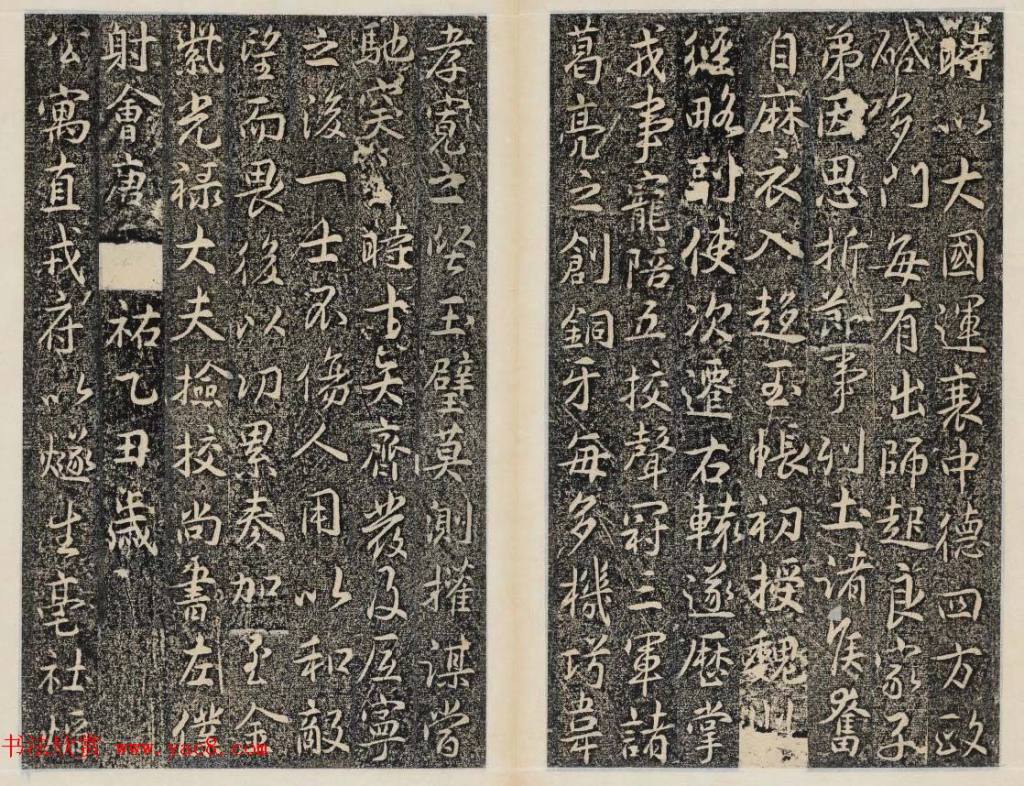 時以大國運衰中德四方政
多門每有出師起良家子
弟因思折節事列土諸侯奮
自麻衣入趍玉帳初授魏州
經略副使次遷右轅遂歷掌
戎事寵陪五挍聲冠三軍諸
葛亮之創銅牙每多機巧韋
孝寬之堅玉壁莫測權謀嘗
馳突時齊發及寧
之後一士不傷人用以和敵
望而畏後以功累奏加至金
紫光祿大夫撿挍尚書左僕
射會唐 祐乙丑歲
公寓直戎府以燧生亳社
书法欣赏 www.yac8.com